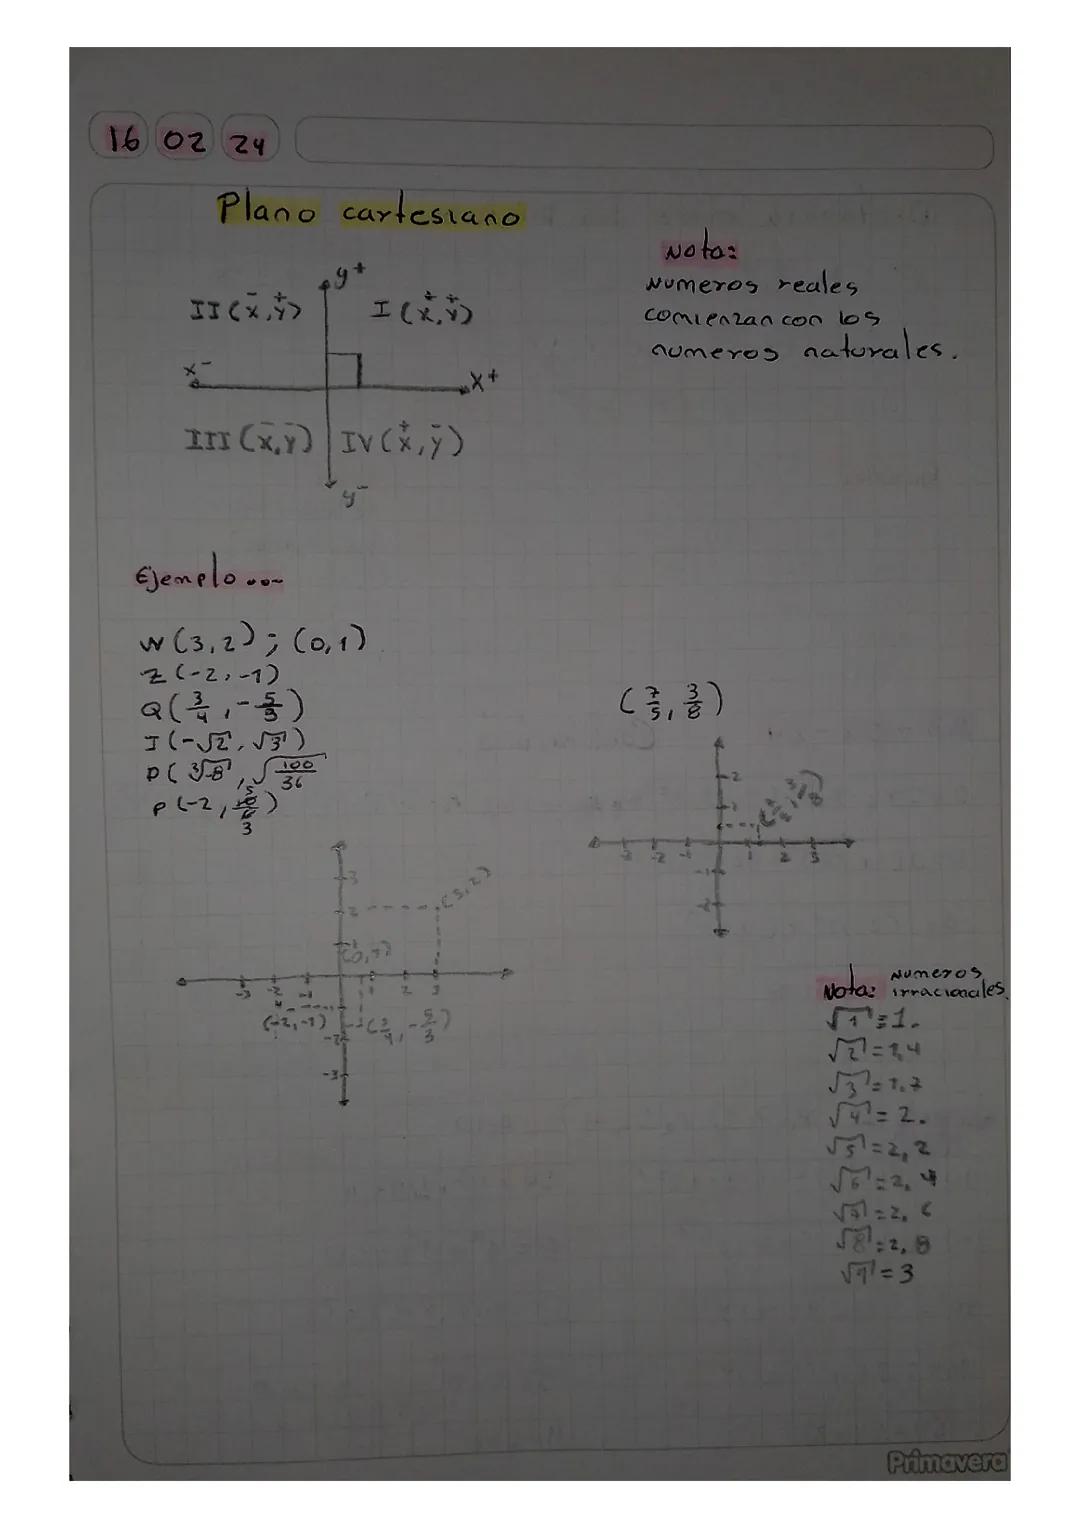 16 02 24
Plano cartesiano
Nota:
Numeros reales
comienzan con los
numeros naturales.
y+
II (x̄, y⁺) I (x⁺, y⁺)
x- x+
III (x̄, ȳ) IV (x⁺, ȳ)
y-
Ejemplo...
W (3, 2) ; (0, 1)
Z (-2, -1)
Q (3/4, -5/3)
I (-√2, √3)
P (∛-8, √100/36
P (-2, 10/6 5/3)
(7/5, 3/8)
2
1
(7/5, 3/8)
-3 -2 -1 1 2 3
-1
-2
3
2 (3, 2)
1
(0, 1)
-3 -2 -1 1 2 3
(-2, -1) (3/4, -5/3)
-2
-3
Nota: Numeros
irracionales.
√1 = 1.
√2 = 1,4
√3 = 1.7
√4 = 2.
√5 = 2,2
√6 = 2,4
√7 = 2,6
√8 = 2,8
√9 = 3
Primavera